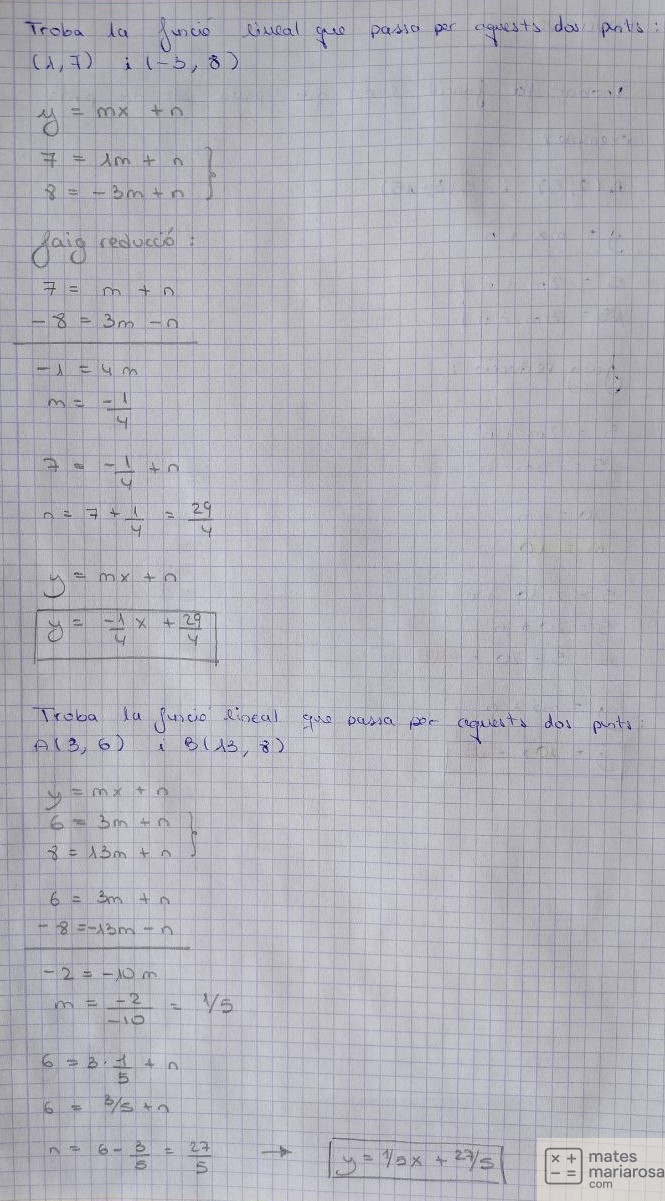 Troba la funció lineal que passa per aquests dos punts:
(1,7) i (-3, 8)
y = mx + n
7 = 1m + n
8 = -3m + n }
faig reducció:
7 = m + n
-8 = 3m - n
-1 = 4m
m = -1/4
7 = -1/4 + n
n = 7 + 1/4 = 29/4
y = mx + n
y = -1/4 x + 29/4
Troba la funció lineal que passa per aquests dos punts:
A(3, 6) i B(13, 8)
y = mx + n
6 = 3m + n
8 = 13m + n }
6 = 3m + n
-8 = -13m - n
-2 = -10m
m = -2/-10 = 1/5
6 = 3 · 1/5 + n
6 = 3/5 + n
n = 6 - 3/5 = 27/5 → y = 1/5x + 27/5
mates
mariarosa
com